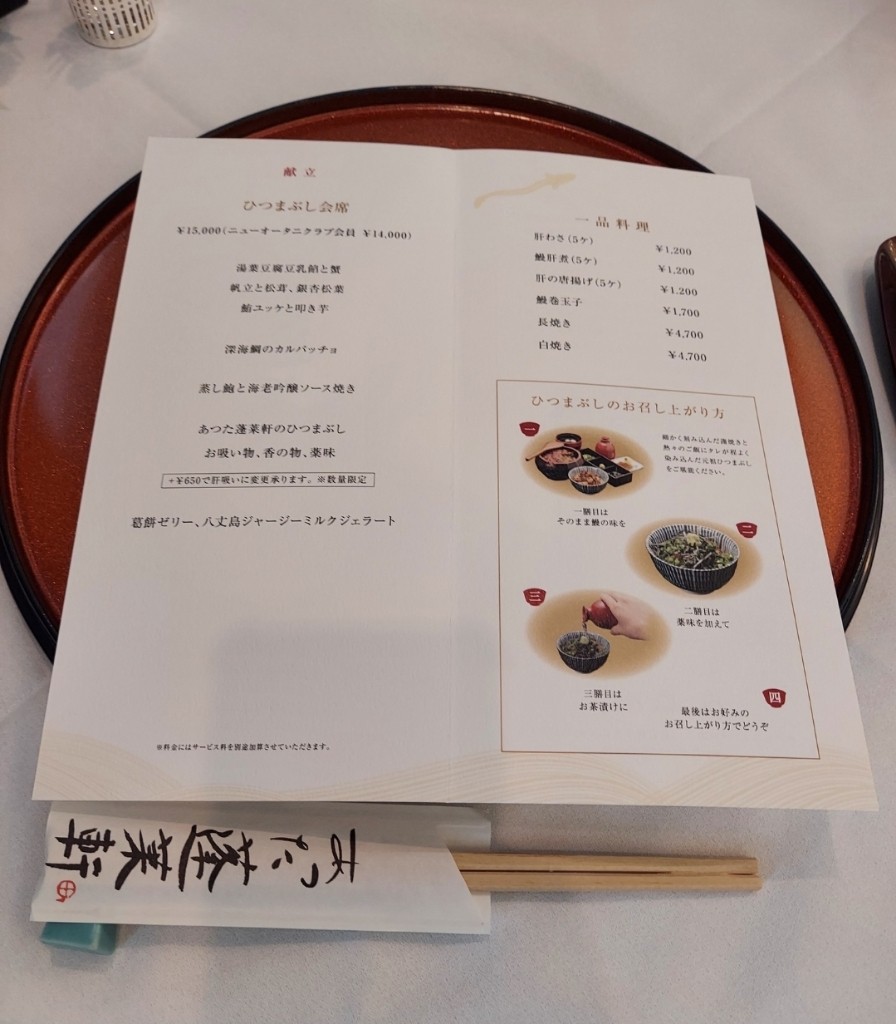 献立
ひつまぶし会席
￥15,000(ニューオータニクラブ会員 ￥14,000)
湯葉豆腐豆乳餡と蟹
帆立と松茸、銀杏松葉
鮪ユッケと叩き芋
深海鯛のカルパッチョ
蒸し鮑と海老吟醸ソース焼き
あつた蓬莱軒のひつまぶし
お吸い物、香の物、薬味
+￥650で肝吸いに変更承ります。※数量限定
葛餅ゼリー、八丈島ジャージーミルクジェラート
※料金にはサービス料を別途加算させていただきます。
一品料理
肝わさ(5ケ) ￥1,200
鰻肝煮(5ケ) ￥1,200
肝の唐揚げ(5ケ) ￥1,200
鰻巻玉子 ￥1,700
長焼き ￥4,700
白焼き ￥4,700
ひつまぶしのお召し上がり方
一
細かく刻み込んだ蒲焼きと
熱々のご飯にタレが程よく
染み込んだ元祖ひつまぶし
をご堪能ください。
一膳目は
そのまま鰻の味を
二
二膳目は
薬味を加えて
三
三膳目は
お茶漬けに
四
最後はお好みの
お召し上がり方でどうぞ
あつた蓬莱軒